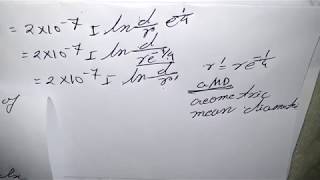 = 2×10⁻⁷ I ln d/r e^1/4
= 2×10⁻⁷ I ln d/re^-1/4
= 2×10⁻⁷ I ln d/r'
r' = re^-1/4
GMD
Geometric
mean diamet
of